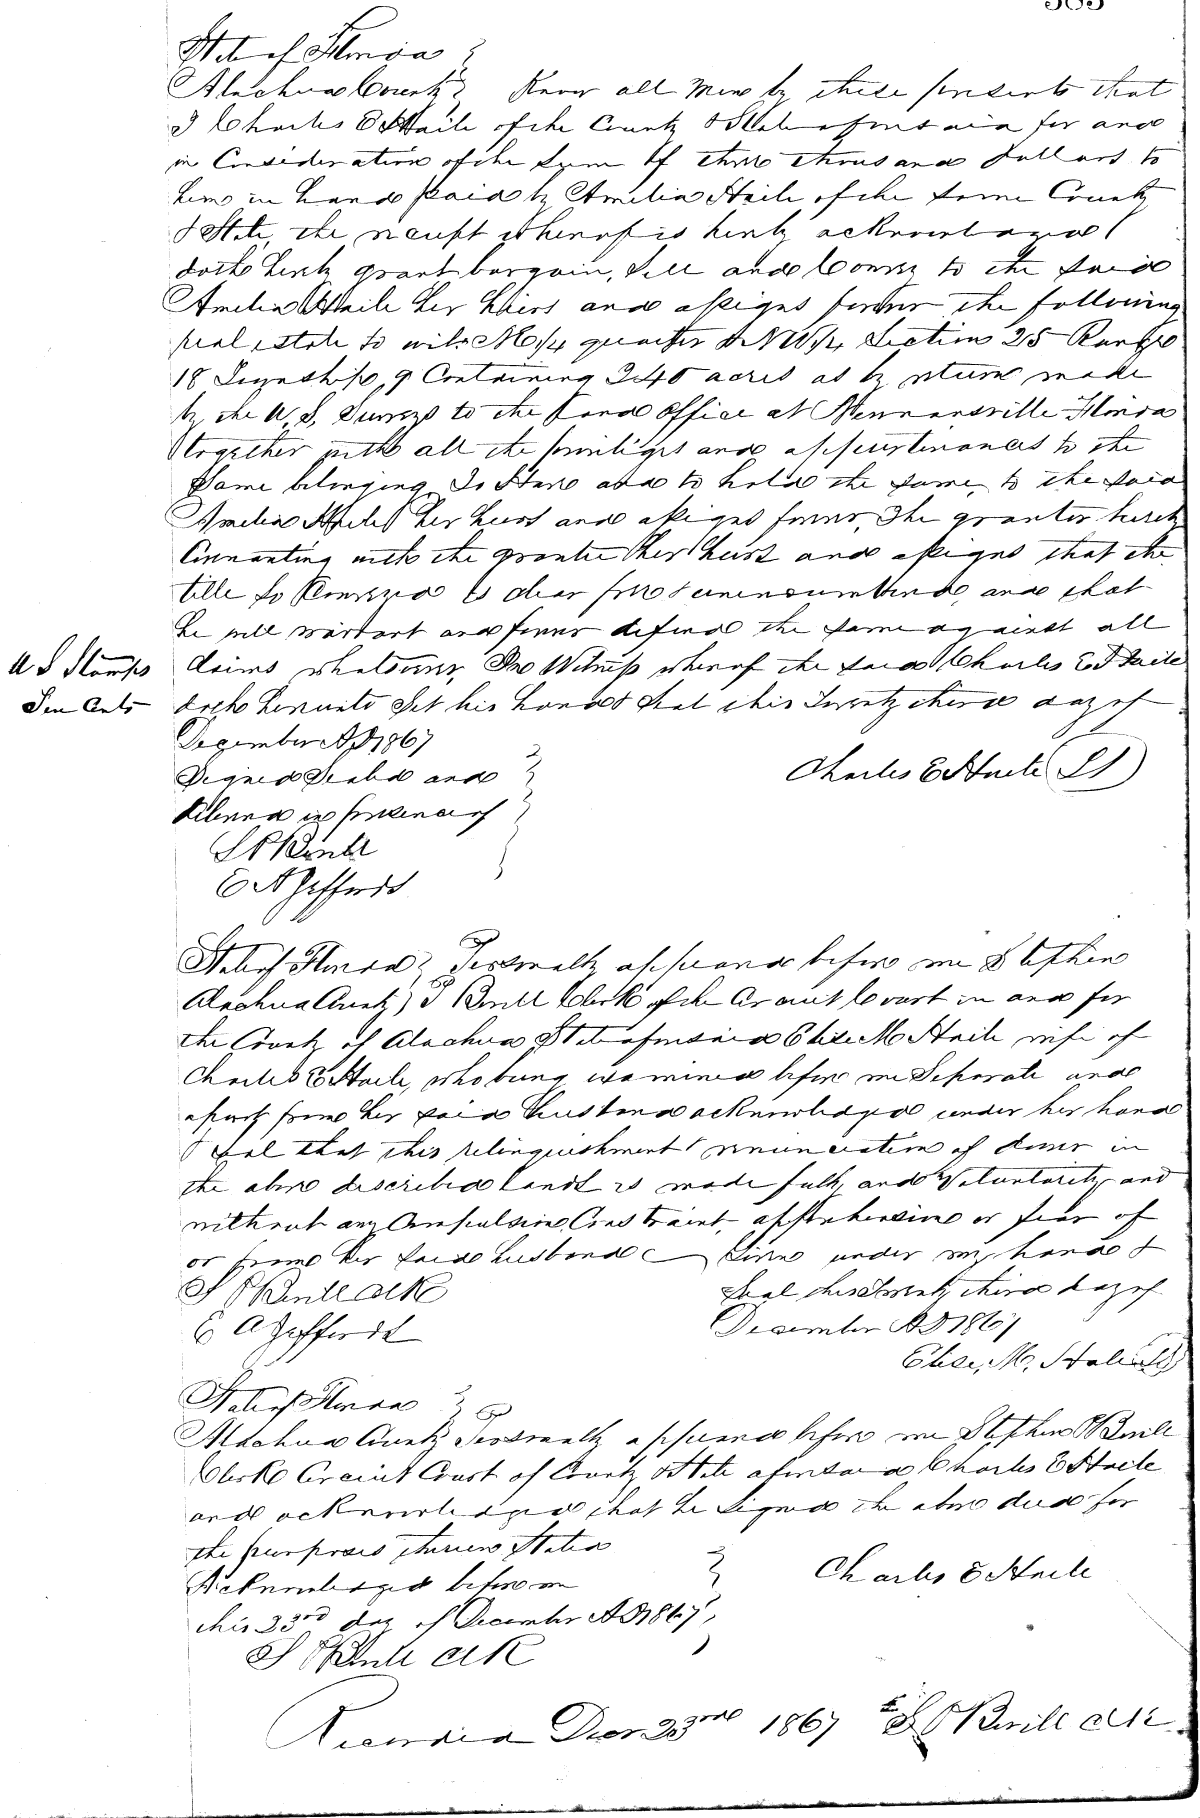 State of Florida
Alachua County Know all Men by these presents that
I Charles E Haile of the County & State aforesaid for and
in Consideration of the Sum of three thousand Dollars to
him in hand paid by Amelia Haile of the same County
& State, the receipt whereof is hereby acknowledged
doth hereby grant bargain, Sell and Convey to the Said
Amelia Haile her heirs and assigns forever the following
real estate to wit: quarter & NW 1/4 Section 25 Range
18 Township 9 Containing 240 acres as by return made
by the U. S. Surveys to the Land Office at Newnansville Florida
together with all the privileges and appurtenances to the
Same belonging To Have and to hold the same, to the Said
Amelia Haile her heirs and assigns forever, The grantor hereby
Covenanting with the grantee her heirs and assigns that the
title so Conveyed is clear free & unencumbered, and that
he will warrant and forever defend the same against all
U S Stamps claims whatsoever, In Witness whereof the Said Charles E Haile
Ten Cents doth hereunto Set his hand & Seal this Twenty third day of
December AD 1867
Signed Sealed and Charles E Haile LS
delivered in presence of
S P Burke
E A Jeffords
State of Florida Personally appeared before me Stephen
Alachua County P Clerk of the Circuit Court in and for
the County of Alachua State aforesaid Elise M Haile wife of
Charles E Haile, who being examined before me Seperate and
apart from her said husband acknowledged under her hand
& seal that this relinquishment & renunciation of dower in
the above described lands is made fully and Voluntarily and
without any Compulsion, Constraint, apprehension or fear of
or from her Said husband Given under my hand &
S P clk Seal this Twenty third day of
E A Jeffords December AD 1867
Elise, M, Haile LS
State of Florida
Alachua County Personally appeared before me Stephen P
Clerk Circuit Court of County & State aforesaid Charles E Haile
and acknowledged that he signed the above deed for
the purposes therein Stated
Acknowledged before me Charles E Haile
this 23rd day of December AD 1867,
S P clk
Recorded Decr 23rd 1867 S P clk